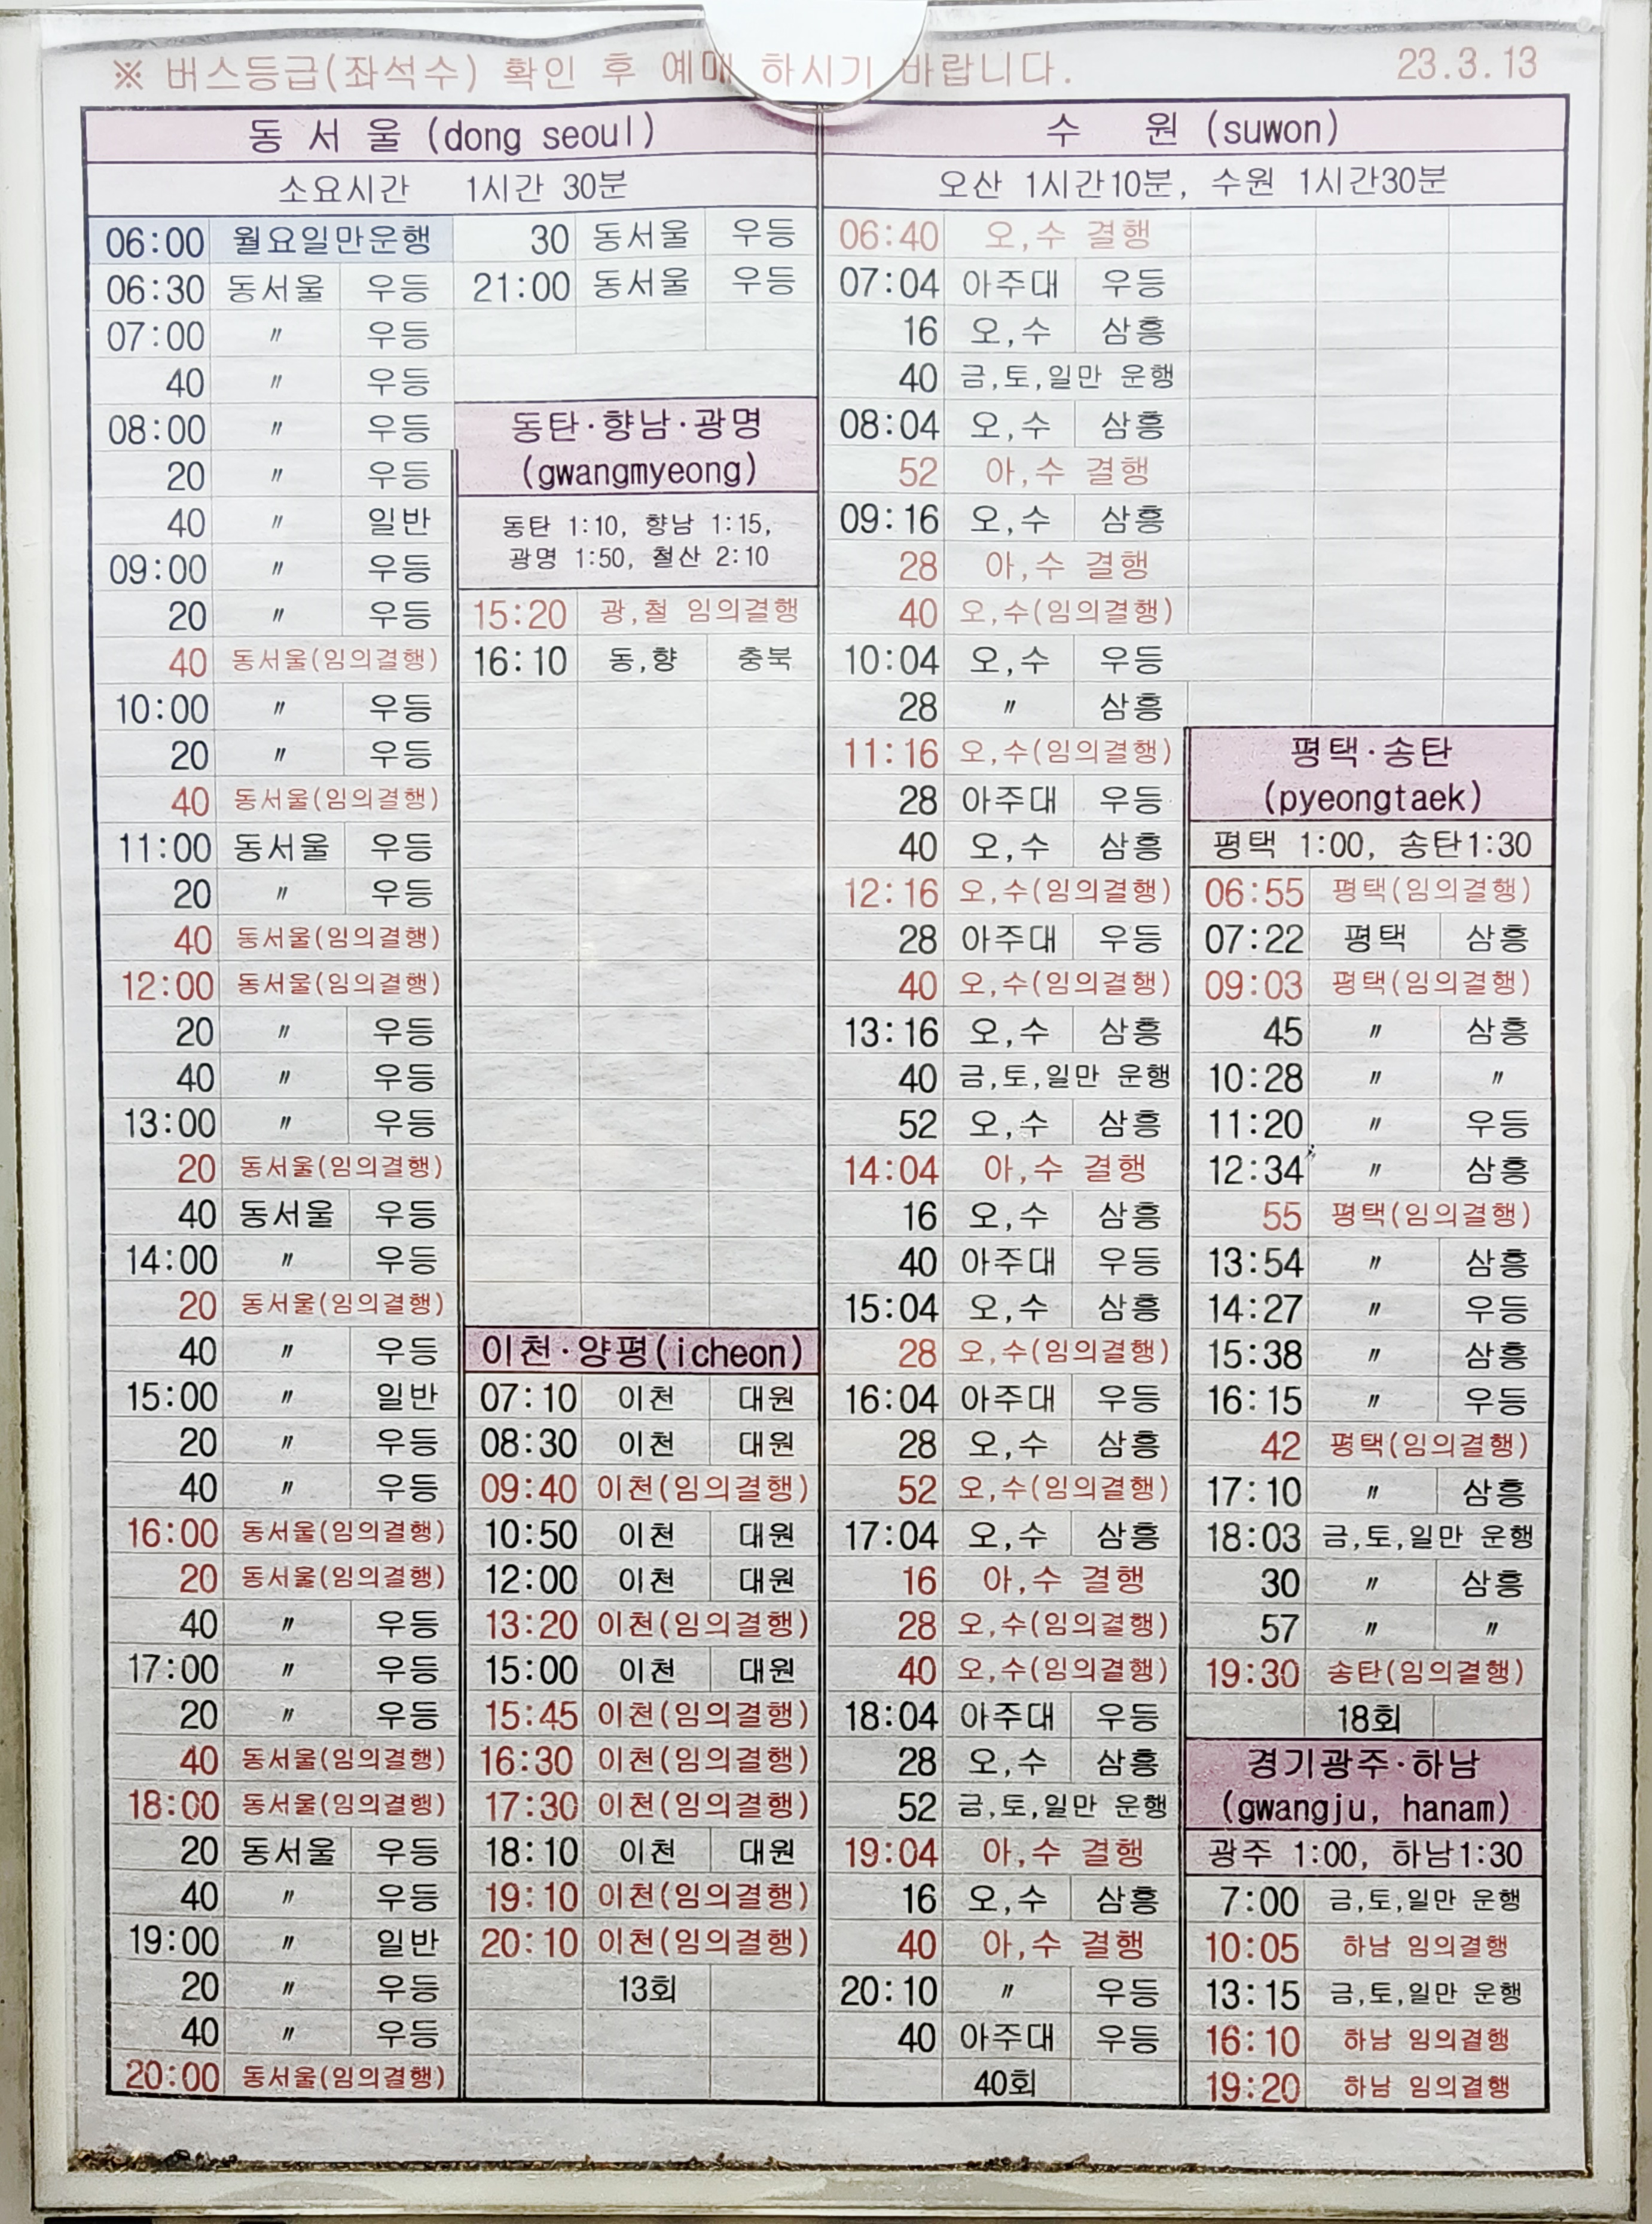 ※ 버스등급(좌석수) 확인 후 예매 하시기 바랍니다. 23.3.13
동 서 울 (dong seoul)
소요시간 1시간 30분
06:00 월요일만운행
06:30 동서울 우등
07:00 〃 우등
40 〃 우등
08:00 〃 우등
20 〃 우등
40 〃 일반
09:00 〃 우등
20 〃 우등
40 동서울(임의결행)
10:00 〃 우등
20 〃 우등
40 동서울(임의결행)
11:00 동서울 우등
20 〃 우등
40 동서울(임의결행)
12:00 동서울(임의결행)
20 〃 우등
40 〃 우등
13:00 〃 우등
20 동서울(임의결행)
40 동서울 우등
14:00 〃 우등
20 동서울(임의결행)
40 〃 우등
15:00 〃 일반
20 〃 우등
40 〃 우등
16:00 동서울(임의결행)
20 동서울(임의결행)
40 〃 우등
17:00 〃 우등
20 〃 우등
40 동서울(임의결행)
18:00 동서울(임의결행)
20 동서울 우등
40 〃 우등
19:00 〃 일반
20 〃 우등
40 〃 우등
20:00 동서울(임의결행)
30 동서울 우등
21:00 동서울 우등
동탄·향남·광명
(gwangmyeong)
동탄 1:10, 향남 1:15,
광명 1:50, 철산 2:10
15:20 광,철 임의결행
16:10 동,향 충북
이천·양평(icheon)
07:10 이천 대원
08:30 이천 대원
09:40 이천(임의결행)
10:50 이천 대원
12:00 이천 대원
13:20 이천(임의결행)
15:00 이천 대원
15:45 이천(임의결행)
16:30 이천(임의결행)
17:30 이천(임의결행)
18:10 이천 대원
19:10 이천(임의결행)
20:10 이천(임의결행)
13회
수 원 (suwon)
오산 1시간10분, 수원 1시간30분
06:40 오,수 결행
07:04 아주대 우등
16 오,수 삼흥
40 금,토,일만 운행
08:04 오,수 삼흥
52 아,수 결행
09:16 오,수 삼흥
28 아,수 결행
40 오,수(임의결행)
10:04 오,수 우등
28 〃 삼흥
11:16 오,수(임의결행)
28 아주대 우등
40 오,수 삼흥
12:16 오,수(임의결행)
28 아주대 우등
40 오,수(임의결행)
13:16 오,수 삼흥
40 금,토,일만 운행
52 오,수 삼흥
14:04 아,수 결행
16 오,수 삼흥
40 아주대 우등
15:04 오,수 삼흥
28 오,수(임의결행)
16:04 아주대 우등
28 오,수 삼흥
52 오,수(임의결행)
17:04 오,수 삼흥
16 아,수 결행
28 오,수(임의결행)
40 오,수(임의결행)
18:04 아주대 우등
28 오,수 삼흥
52 금,토,일만 운행
19:04 아,수 결행
16 오,수 삼흥
40 아,수 결행
20:10 〃 우등
40 아주대 우등
40회
평택·송탄
(pyeongtaek)
평택 1:00, 송탄1:30
06:55 평택(임의결행)
07:22 평택 삼흥
09:03 평택(임의결행)
45 〃 삼흥
10:28 〃 〃
11:20 〃 우등
12:34 〃 삼흥
55 평택(임의결행)
13:54 〃 삼흥
14:27 〃 우등
15:38 〃 삼흥
16:15 〃 우등
42 평택(임의결행)
17:10 〃 삼흥
18:03 금,토,일만 운행
30 〃 삼흥
57 〃 〃
19:30 송탄(임의결행)
18회
경기광주·하남
(gwangju, hanam)
광주 1:00, 하남1:30
7:00 금,토,일만 운행
10:05 하남 임의결행
13:15 금,토,일만 운행
16:10 하남 임의결행
19:20 하남 임의결행